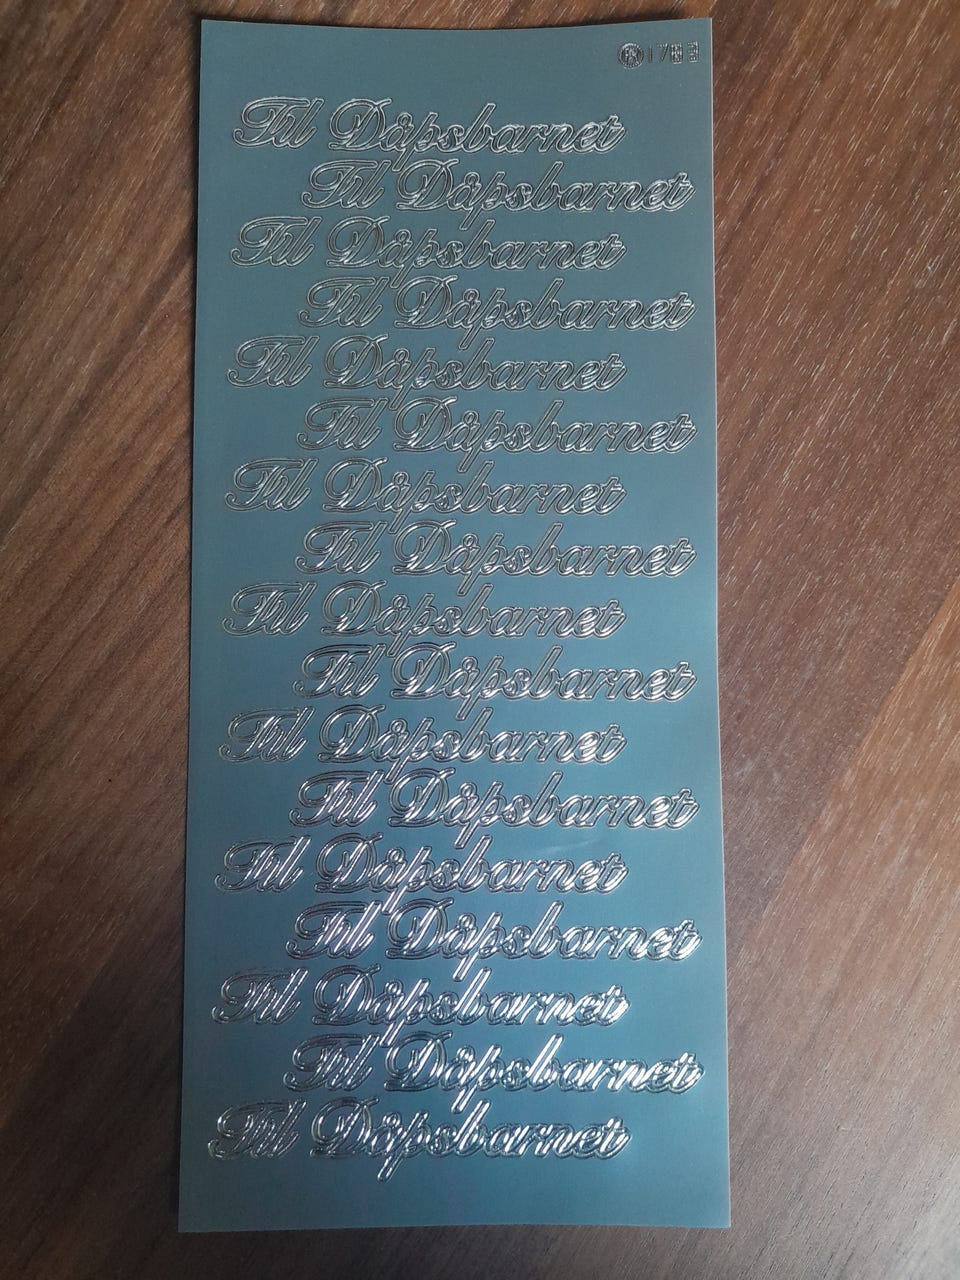 1783
Til Dåpsbarnet
Til Dåpsbarnet
Til Dåpsbarnet
Til Dåpsbarnet
Til Dåpsbarnet
Til Dåpsbarnet
Til Dåpsbarnet
Til Dåpsbarnet
Til Dåpsbarnet
Til Dåpsbarnet
Til Dåpsbarnet
Til Dåpsbarnet
Til Dåpsbarnet
Til Dåpsbarnet
Til Dåpsbarnet
Til Dåpsbarnet
Til Dåpsbarnet